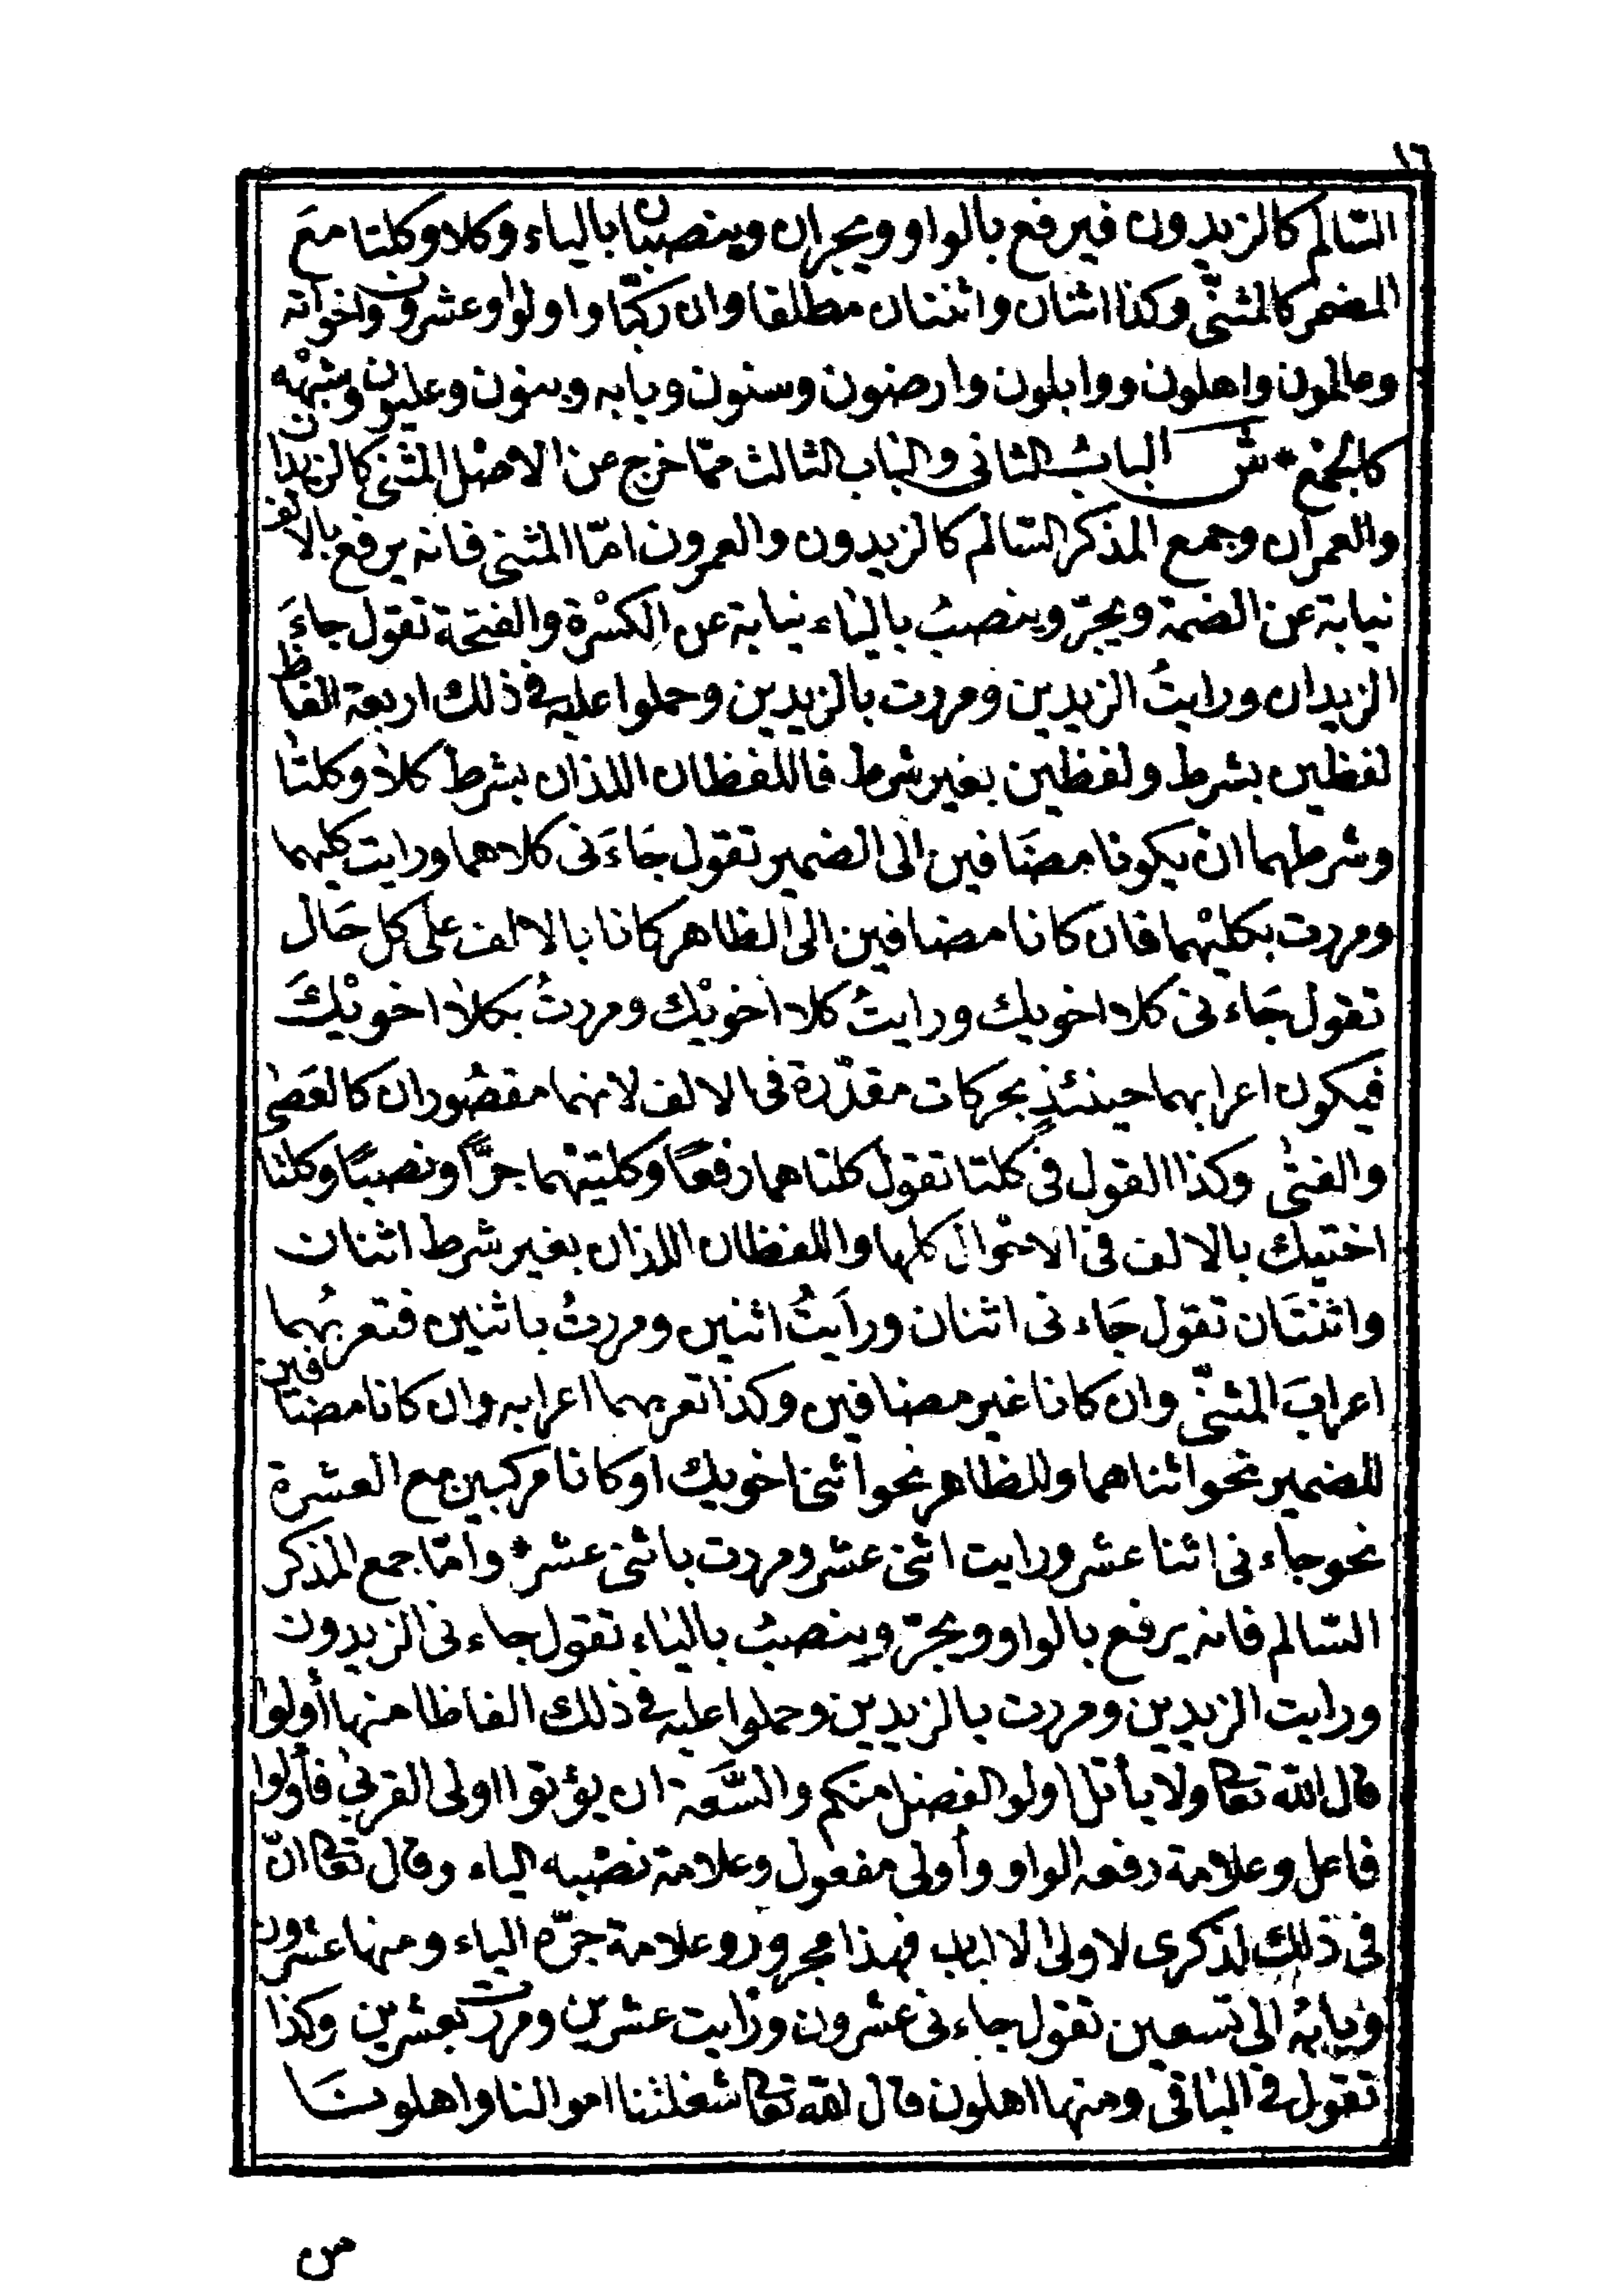 ١٦
السّالم كالزيدون فيرفع بالواو ويجران وينصبان بالياء وكلا وكلتا معَ
المضمر كالمثنّى وكذا اثنان واثنتان مطلقا وان ركبّا واولوا وعشرون واخواته
وعالمون واهلون ووابلون وارضون وسنون وبابه وبنون وعليون وشبهْه
كالجمع * ش الباب الثانى والباب الثالث ممّا خرج عن الاصْل المثنى كالزيدان
والعمران وجمع المذكر السّالم كالزيدون والعمرون امّا المثنى فانه يرفع بالالف
نيابة عن الضمة ويجرّ وينصبُ بالياء نيابة عن الكسْرة والفتحة تقول جاءَ
الزيدان ورايتُ الزيدين ومررت بالزيدين وحملوا عليه فى ذلك اربعة الفاظ
لفظين بشرط ولفظين بغير شرط فاللفظان اللذان بشرط كلا وكلتا
وشرطهما ان يكونا مضَافين الى الضمير تقول جَاءَنى كلاهما ورايت كليهما
ومررت بكليْهما فان كانا مضافين الى الظاهر كانا بالالف على كل حَال
تقول جَاءنى كلا اخويك ورايتُ كلا اخويْك ومررتُ بكلا اخويْكَ
فيكون اعرابهما حينئذٍ بحركات مقدّرة فى الالف لانهما مقصُوران كالعَصٰى
والفتٰى وكذا القول فى كلتا تقول كلتاهما رفعًا وكلتيْهما جرًّا ونصبًا وكلتا
اختيك بالالف فى الاحْوال كلها واللفظان اللذان بغير شرط اثنان
واثنتَان تقول جَاءنى اثنان ورأيتُ اثنين ومررتُ باثنين فتعربُهما
اعرابَ المثنّى وان كانا غير مضافين وكذا تعربهما اعرابه وان كانا مضافين
للضمير نحو اثناهما وللظاهر نحو اثنى اخويك او كانا مركبين مع العشرة
نحو جاءنى اثنا عشر ورايت اثنى عشر ومررت باثنى عشر * وامّا جمع المذكر
السّالم فانه يرفع بالواو ويجرّ وينصبُ بالياء تقول جاءنى الزيدون
ورايت الزيدين ومررت بالزيدين وحملوا عليه فى ذلك الفاظا منها أولوا
قال الله تعا ولا يأتل اولو الفضل منكم والسَّعة ان يؤتوا اولى القربى فأولوا
فاعل وعلامة رفعه الواو وأولى مفعول وعلامة نصْبه الياء وقال تعا انّ
فى ذلك لذكرى لاولى الالباب فهذا مجرور وعلامة جرّه الياء ومنها عشرون
وبابُه الى تسعين تقول جاءنى عشرون ورايت عشرين ومررت بعشرين وكذا
تقول فى الباقى ومنها اهلون قال الله تعا شغلتنا اموالنا واهلونَا